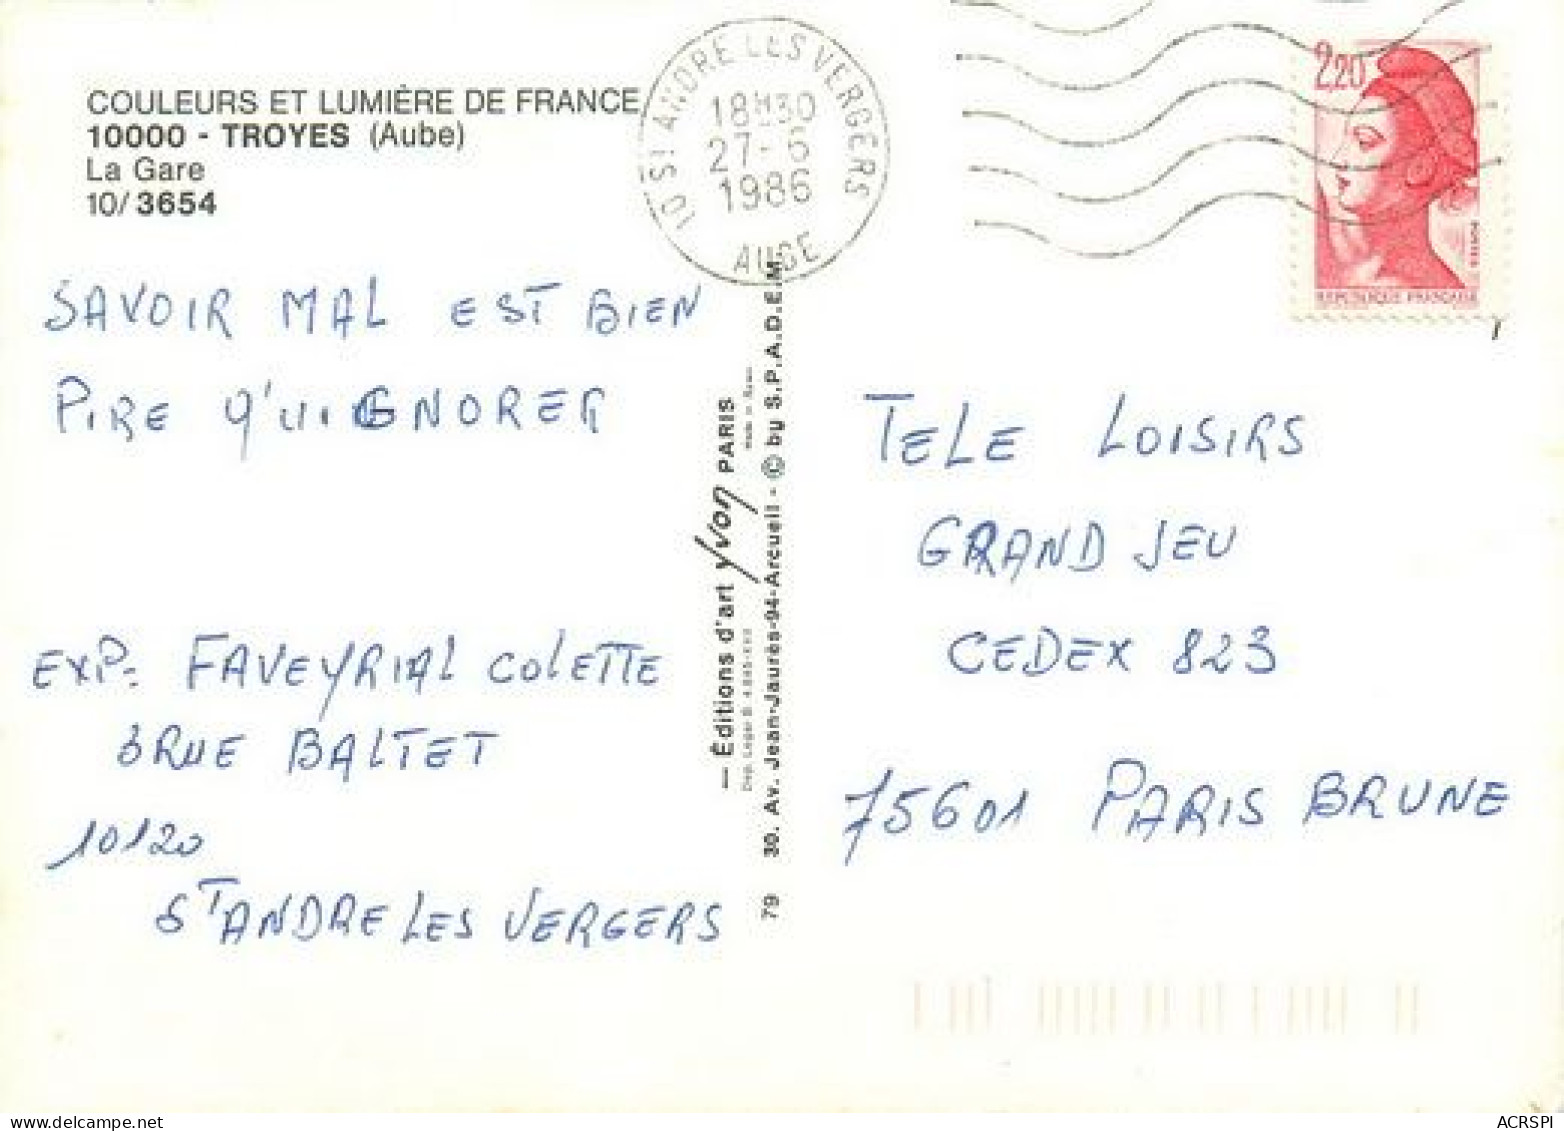 COULEURS ET LUMIÈRE DE FRANCE
10000 - TROYES (Aube)
La Gare
10/ 3654
10 ST ANDRE LES VERGERS
18H30
27-6
1986
AUBE
2,20
REPUBLIQUE FRANÇAISE
SAVOIR MAL EST BIEN
PIRE QU'IGNORER
EXP: FAVEYRIAL COLETTE
3 RUE BALTET
10120
ST ANDRE LES VERGERS
— Éditions d'art yvon PARIS
79 30. Av. Jean-Jaurès-94-Arcueil - © by S.P.A.D.E.M.
TELE LOISIRS
GRAND JEU
CEDEX 823
75601 PARIS BRUNE
ACRSPI